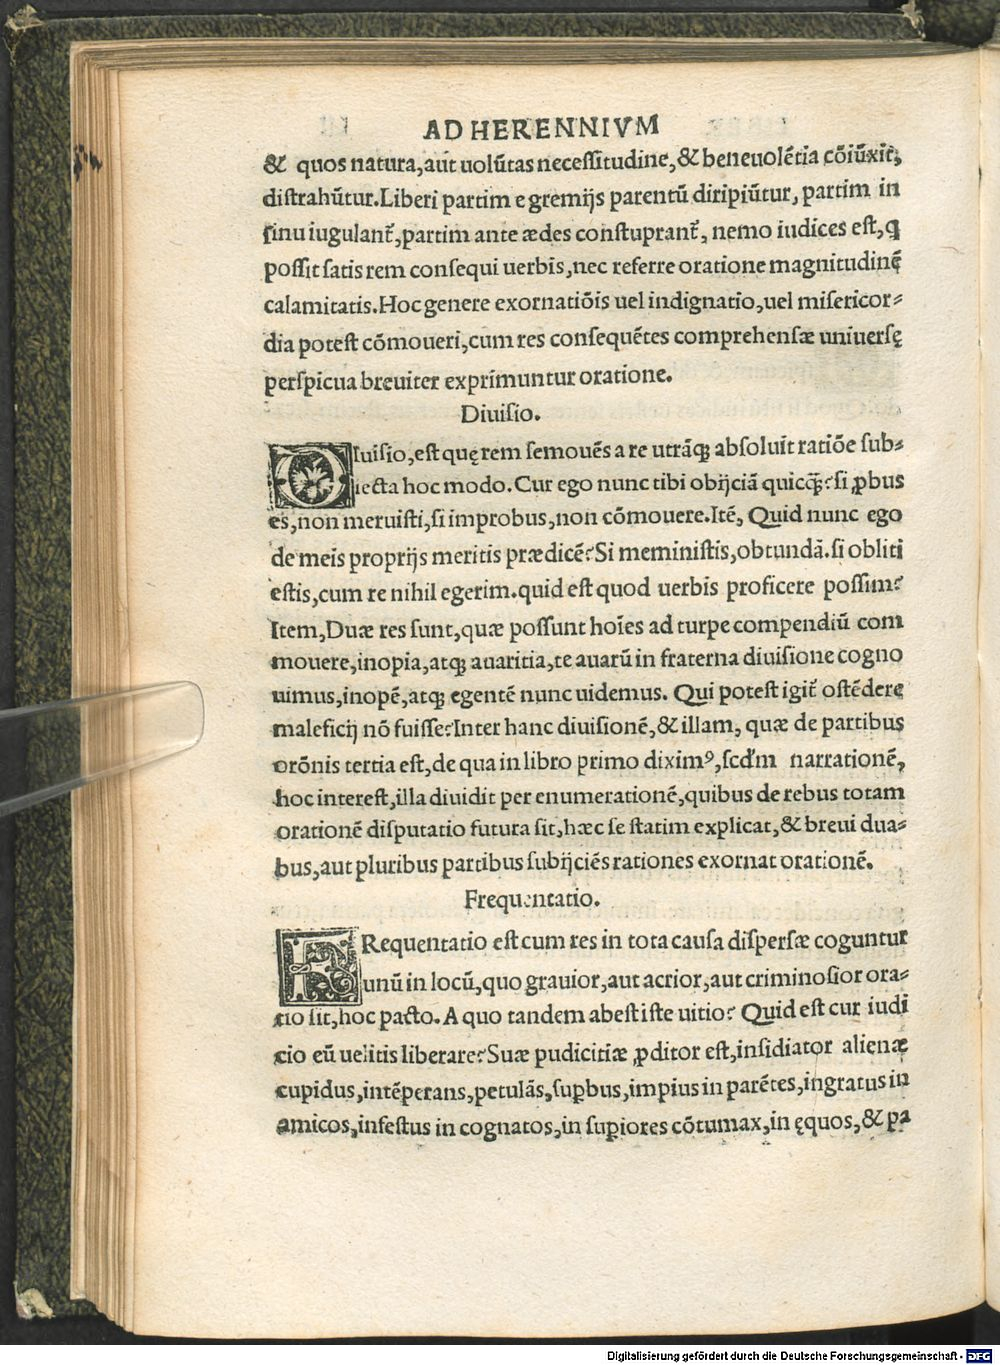 AD HERENNIVM
& quos natura, aut uolũtas necessitudine, & beneuolẽtia cõiũxit,
distrahũtur. Liberi partim e gremijs parentũ diripiũtur, partim in
sinu iugulant̃, partim ante ædes constuprant̃, nemo iudices est, q
possit satis rem consequi uerbis, nec referre oratione magnitudinẽ
calamitatis. Hoc genere exornatiõis uel indignatio, uel misericor-
dia potest cõmoueri, cum res consequẽtes comprehensæ uniuersę
perspicua breuiter exprimuntur oratione.
Diuisio.
DIuisio, est quę rem semouẽs a re utrãq; absoluit ratiõe sub-
iecta hoc modo. Cur ego nunc tibi obijciã quicq̃? si ꝓbus
es, non meruisti, si improbus, non cõmouere. Itẽ, Quid nunc ego
de meis proprijs meritis prædicẽ? Si meministis, obtundã. si obliti
estis, cum re nihil egerim. quid est quod uerbis proficere possim?
Item, Duæ res sunt, quæ possunt hoĩes ad turpe compendiũ com
mouere, inopia, atq; auaritia, te auarũ in fraterna diuisione cogno
uimus, inopẽ, atq; egentẽ nunc uidemus. Qui potest igit̃ ostẽdere
maleficij nõ fuisse? Inter hanc diuisionẽ, & illam, quæ de partibus
orõnis tertia est, de qua in libro primo diximꝰ, scd̃m narrationẽ,
hoc interest, illa diuidit per enumerationẽ, quibus de rebus totam
orationẽ disputatio futura sit, hæc se statim explicat, & breui dua-
bus, aut pluribus partibus subijciẽs rationes exornat orationẽ.
Frequentatio.
FRequentatio est cum res in tota causa dispersæ coguntur
unũ in locũ, quo grauior, aut acrior, aut criminosior ora-
tio sit, hoc pacto. A quo tandem abest iste uitio? Quid est cur iudi
cio eũ uelitis liberare? Suæ pudicitiæ ꝓditor est, insidiator alienæ
cupidus, intẽperans, petulãs, suꝑbus, impius in parẽtes, ingratus in
amicos, infestus in cognatos, in suꝑiores cõtumax, in ęquos, & pa
Digitalisierung gefördert durch die Deutsche Forschungsgemeinschaft - DFG